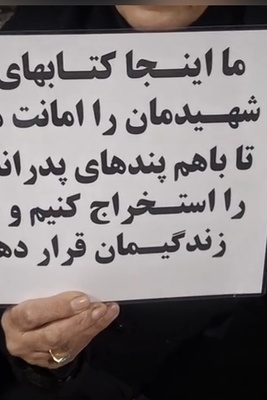 ما اینجا کتابهای
شهیدمان را امانت
تا باهم پندهای
را استخراج کنیم و
زندگیمان قرار